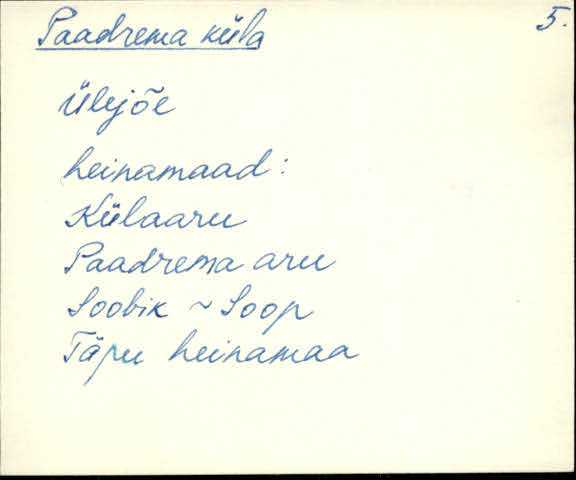 Paadrema küla 5.
Ülejõe
heinamaad:
Külaaru
Paadrema aru
Soobik ~ Soop
Täpu heinamaa